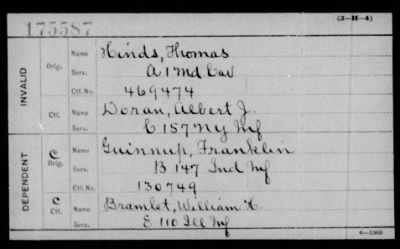 175587
(3—H—4)
INVALID
Orig.
Name Hinds, Thomas
Serv. A 1 Md Cav
Ctf. No. 469474
Ctf.
Name Doran, Albert J.
Serv. C 157 NY Inf
DEPENDENT
C Orig.
Name Guinnup, Franklin
Serv. B 147 Ind Inf
Ctf. No. 130749
C Ctf.
Name Bramlet, William H.
Serv. E 110 Ill Inf
6—1303